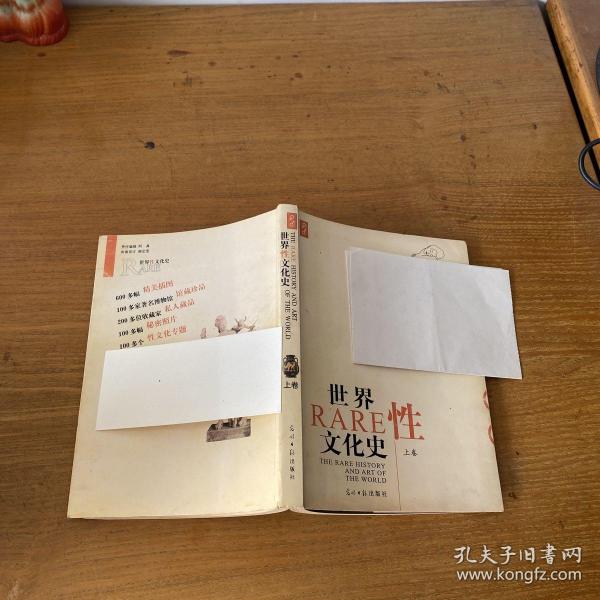 世界性文化史
RARE
600多幅 精美插图
100多家著名博物馆 馆藏珍品
200多位收藏家 私人藏品
100多幅 秘密照片
100多个 性文化专题
世界性文化史
THE RARE HISTORY AND ART
OF THE WORLD
上卷
光明日报出版社
世界
RARE性
文化史
上卷
THE RARE HISTORY
AND ART OF
THE WORLD
光明日报出版社
孔夫子旧书网
www.kongfz.com